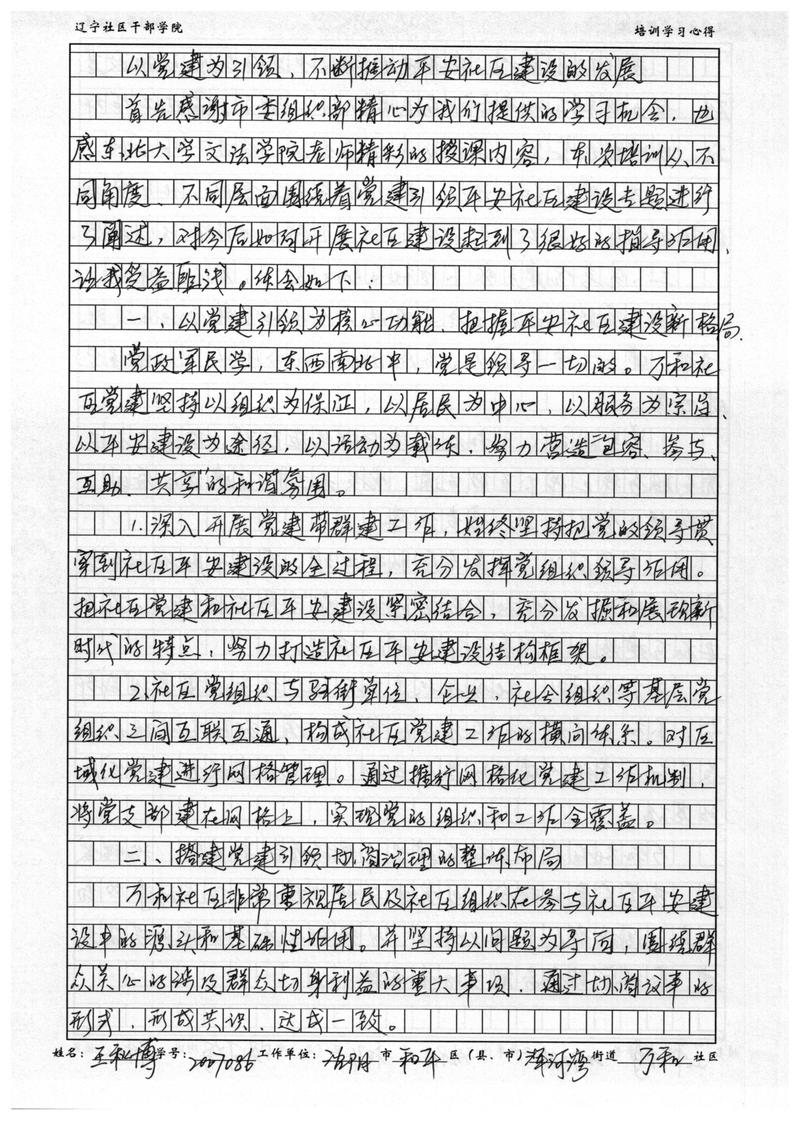 辽宁社区干部学院 培训学习心得
以党建为引领，不断推动平安社区建设的发展
首先感谢市委组织部精心为我们提供的学习机会，也
感东北大学文法学院老师精彩的授课内容，本次培训从不
同角度、不同层面围绕着党建引领平安社区建设专题进行
了阐述，对今后如何开展社区建设起到了很好的指导作用，
让我受益匪浅。体会如下：
一、以党建引领为核心功能，把握平安社区建设新格局
党政军民学，东西南北中，党是领导一切的。万和社
区党建坚持以组织为保证，以居民为中心，以服务为宗旨、
以平安建设为途径，以活动为载体，努力营造"包容、参与、
互助、共享"的和谐氛围。
1.深入开展党建带群建工作，始终坚持把党的领导贯
穿到社区平安建设的全过程，充分发挥党组织领导作用。
把社区党建和社区平安建设紧密结合，充分发掘和展现新
时代的特点，努力打造社区平安建设结构框架。
2.社区党组织与驻街单位、企业、社会组织等基层党
组织之间互联互通、构成社区党建工作的横向体系。对区
域化党建进行网格管理。通过推行网格化党建工作机制，
将党支部建在网格上，实现党的组织和工作全覆盖。
二、搭建党建引领协商治理的整体布局
万和社区非常重视居民及社区组织在参与社区平安建
设中的源头和基础性作用。并坚持以问题为导向，围绕群
众关心的涉及群众切身利益的重大事项，通过协商议事的
形式，形成共识、达成一致。
姓名：王秋博 学号：2007086 工作单位：沈阳 市 和平 区（县、市）浑河湾 街道 万和 社区